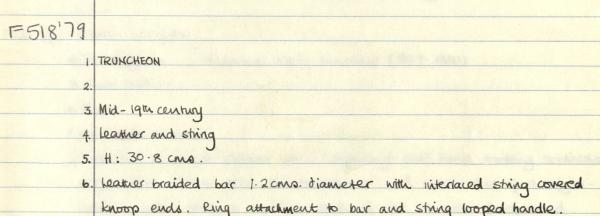 F518'79
1. TRUNCHEON
2.
3. Mid-19th century
4. Leather and string
5. H: 30.8 cms.
6. Leather braided bar 1.2cms. diameter with interlaced string covered
knoop ends. Ring attachment to bar and string looped handle.